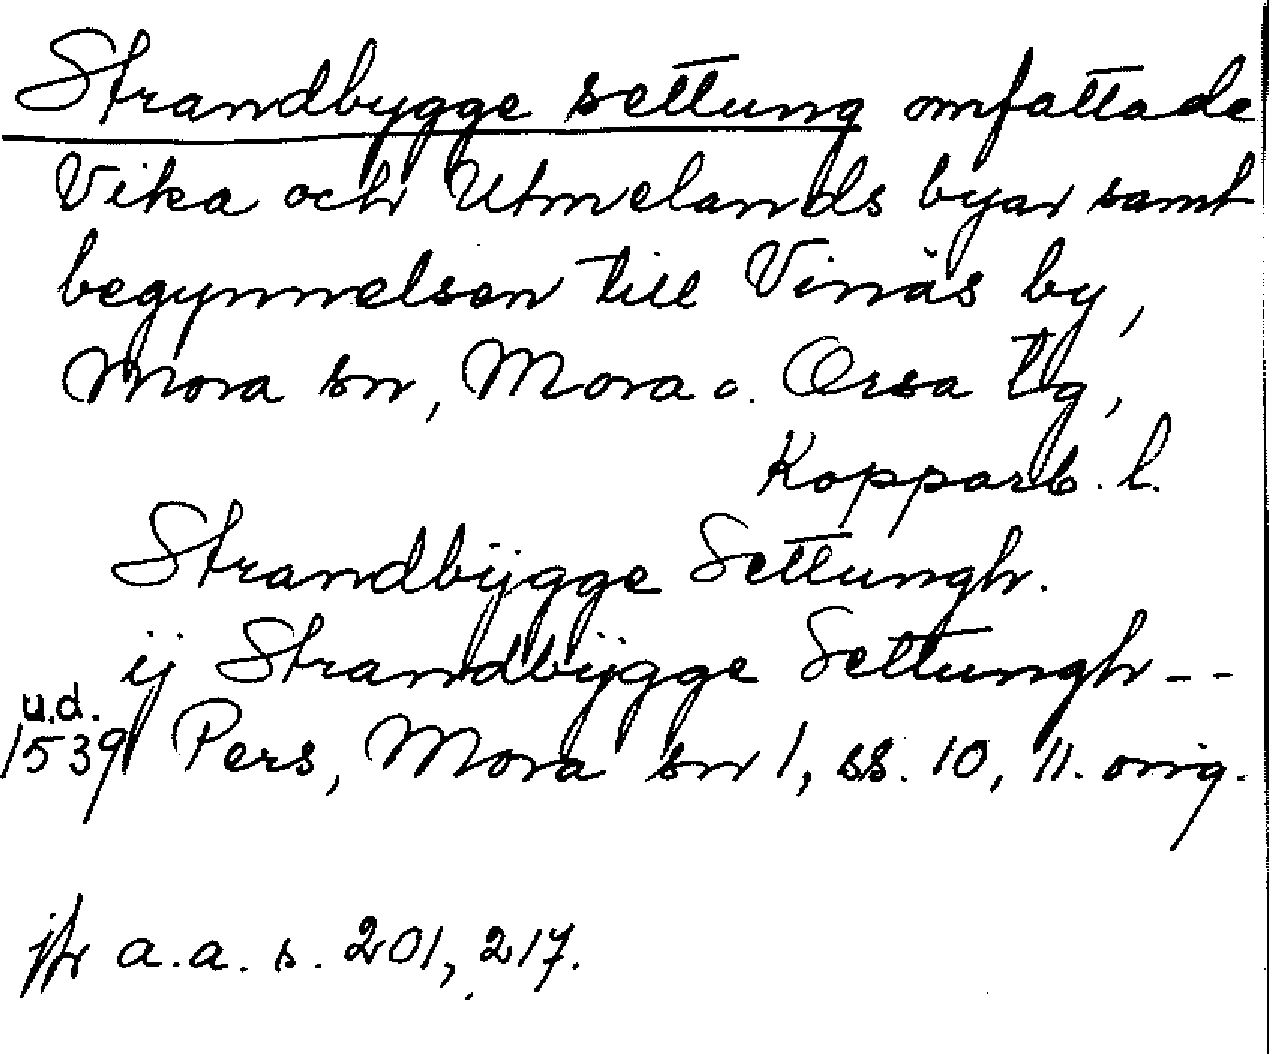 Strandbygge settung omfattade
Vika och Utmelands byar samt
begynnelsen till Vinäs by,
Mora sn, Mora o. Orsa tg,
Kopparb. l.
Strandbÿgge Settungh.
ij Strandbÿgge Settungh --
u.d.
1539 Pers, Mora sn 1, ss. 10, 11. orig.
jfr a.a. s. 201, 217.